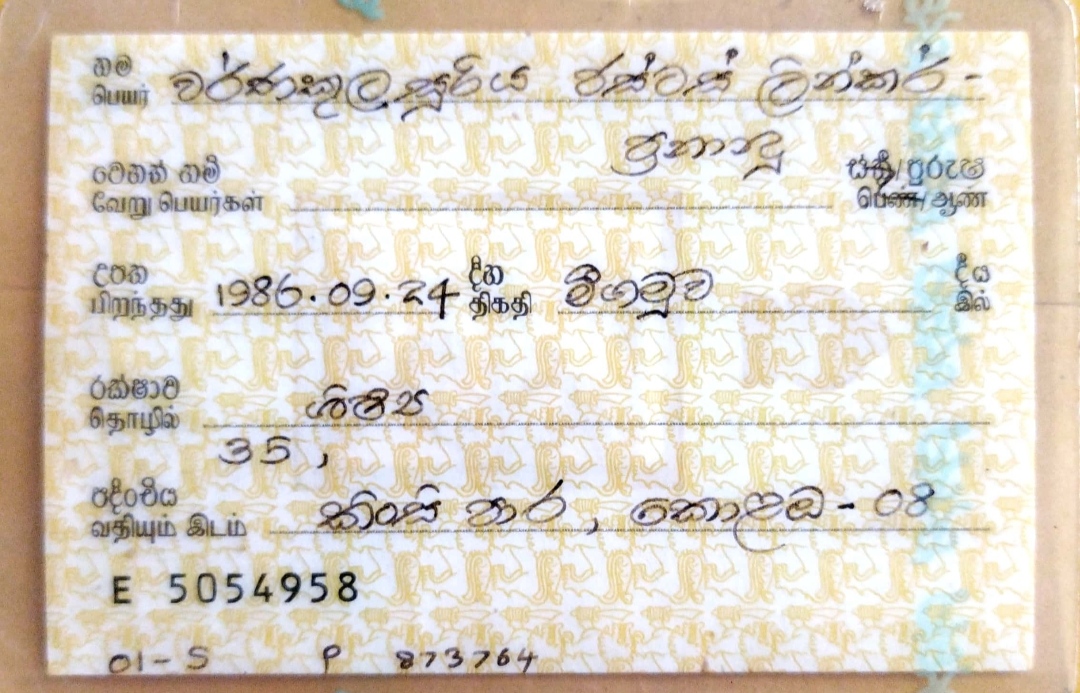 නම
பெயர் වර්ණකුලසූරිය රස්ටස් ලින්කර් -
ප්‍රනාන්දු
වෙනත් නම්
வேறு பெயர்கள்
ස්ත්‍රී/පුරුෂ
பெண்/ஆண்
උපත දින දීය
பிறந்தது 1986.09.24 திகதி මීගමුව இல்
රක්ෂාව
தொழில் ශිෂ්‍ය
35,
පදිංචිය
வதியும் இடம் කිංසි පාර, කොළඹ - 08
E 5054958
01-S P 873764